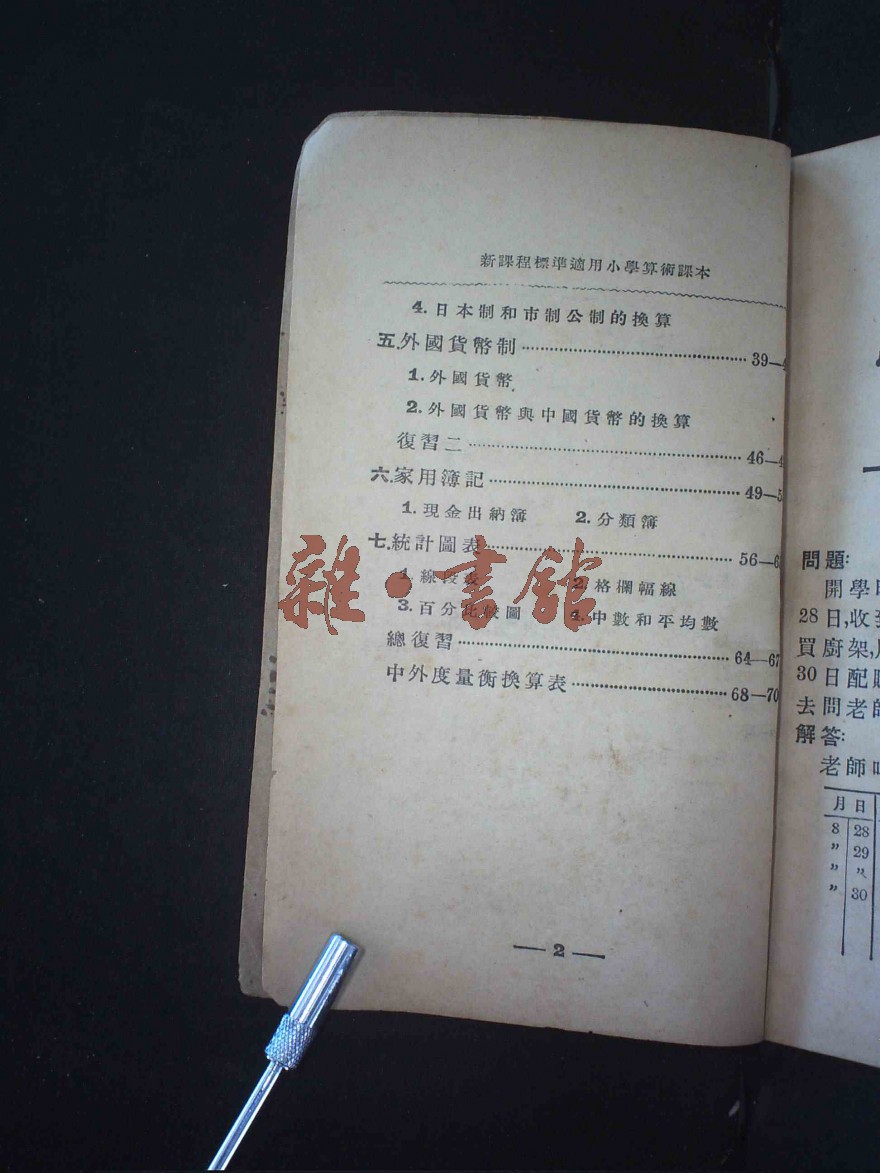 新課程標準適用小學算術課本
4. 日本制和市制公制的換算
五.外國貨幣制 39—4
1. 外國貨幣
2. 外國貨幣與中國貨幣的換算
復習二 46—4
六.家用簿記 49—5
1. 現金出納簿 2. 分類簿
七.統計圖表 56—6
1. 線段 2. 格欄幅線
3. 百分比較圖 4. 中數和平均數
總復習 64—67
中外度量衡換算表 68—70
— 2 —
雜·書館
問題:
開學
28日,收到
買廚架,
30日配
去問老師
解答:
老師
月 日
8 28
〃 29
〃 〃
〃 30